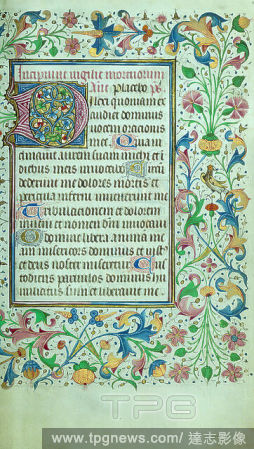 Incipiunt vigilie mortuorum
Placebo ps
Dilexi quoniam ex
audiet dominus
vocem oracionis
mee. Quia in
clinavit aurem suam michi et i
diebus meis invocabo Circu
dederunt me dolores mortis et
pericula inferni invenerunt me
Tribulationem et dolorem
inveni et nomen dni invocavi
O domine libera animam me
am misericors dominus et iust
et deus noster miseretur Cus
todiens parvulos dominus hu
miliatus sum et liberavit me
TPG
www.tpgnews.com/達志影像